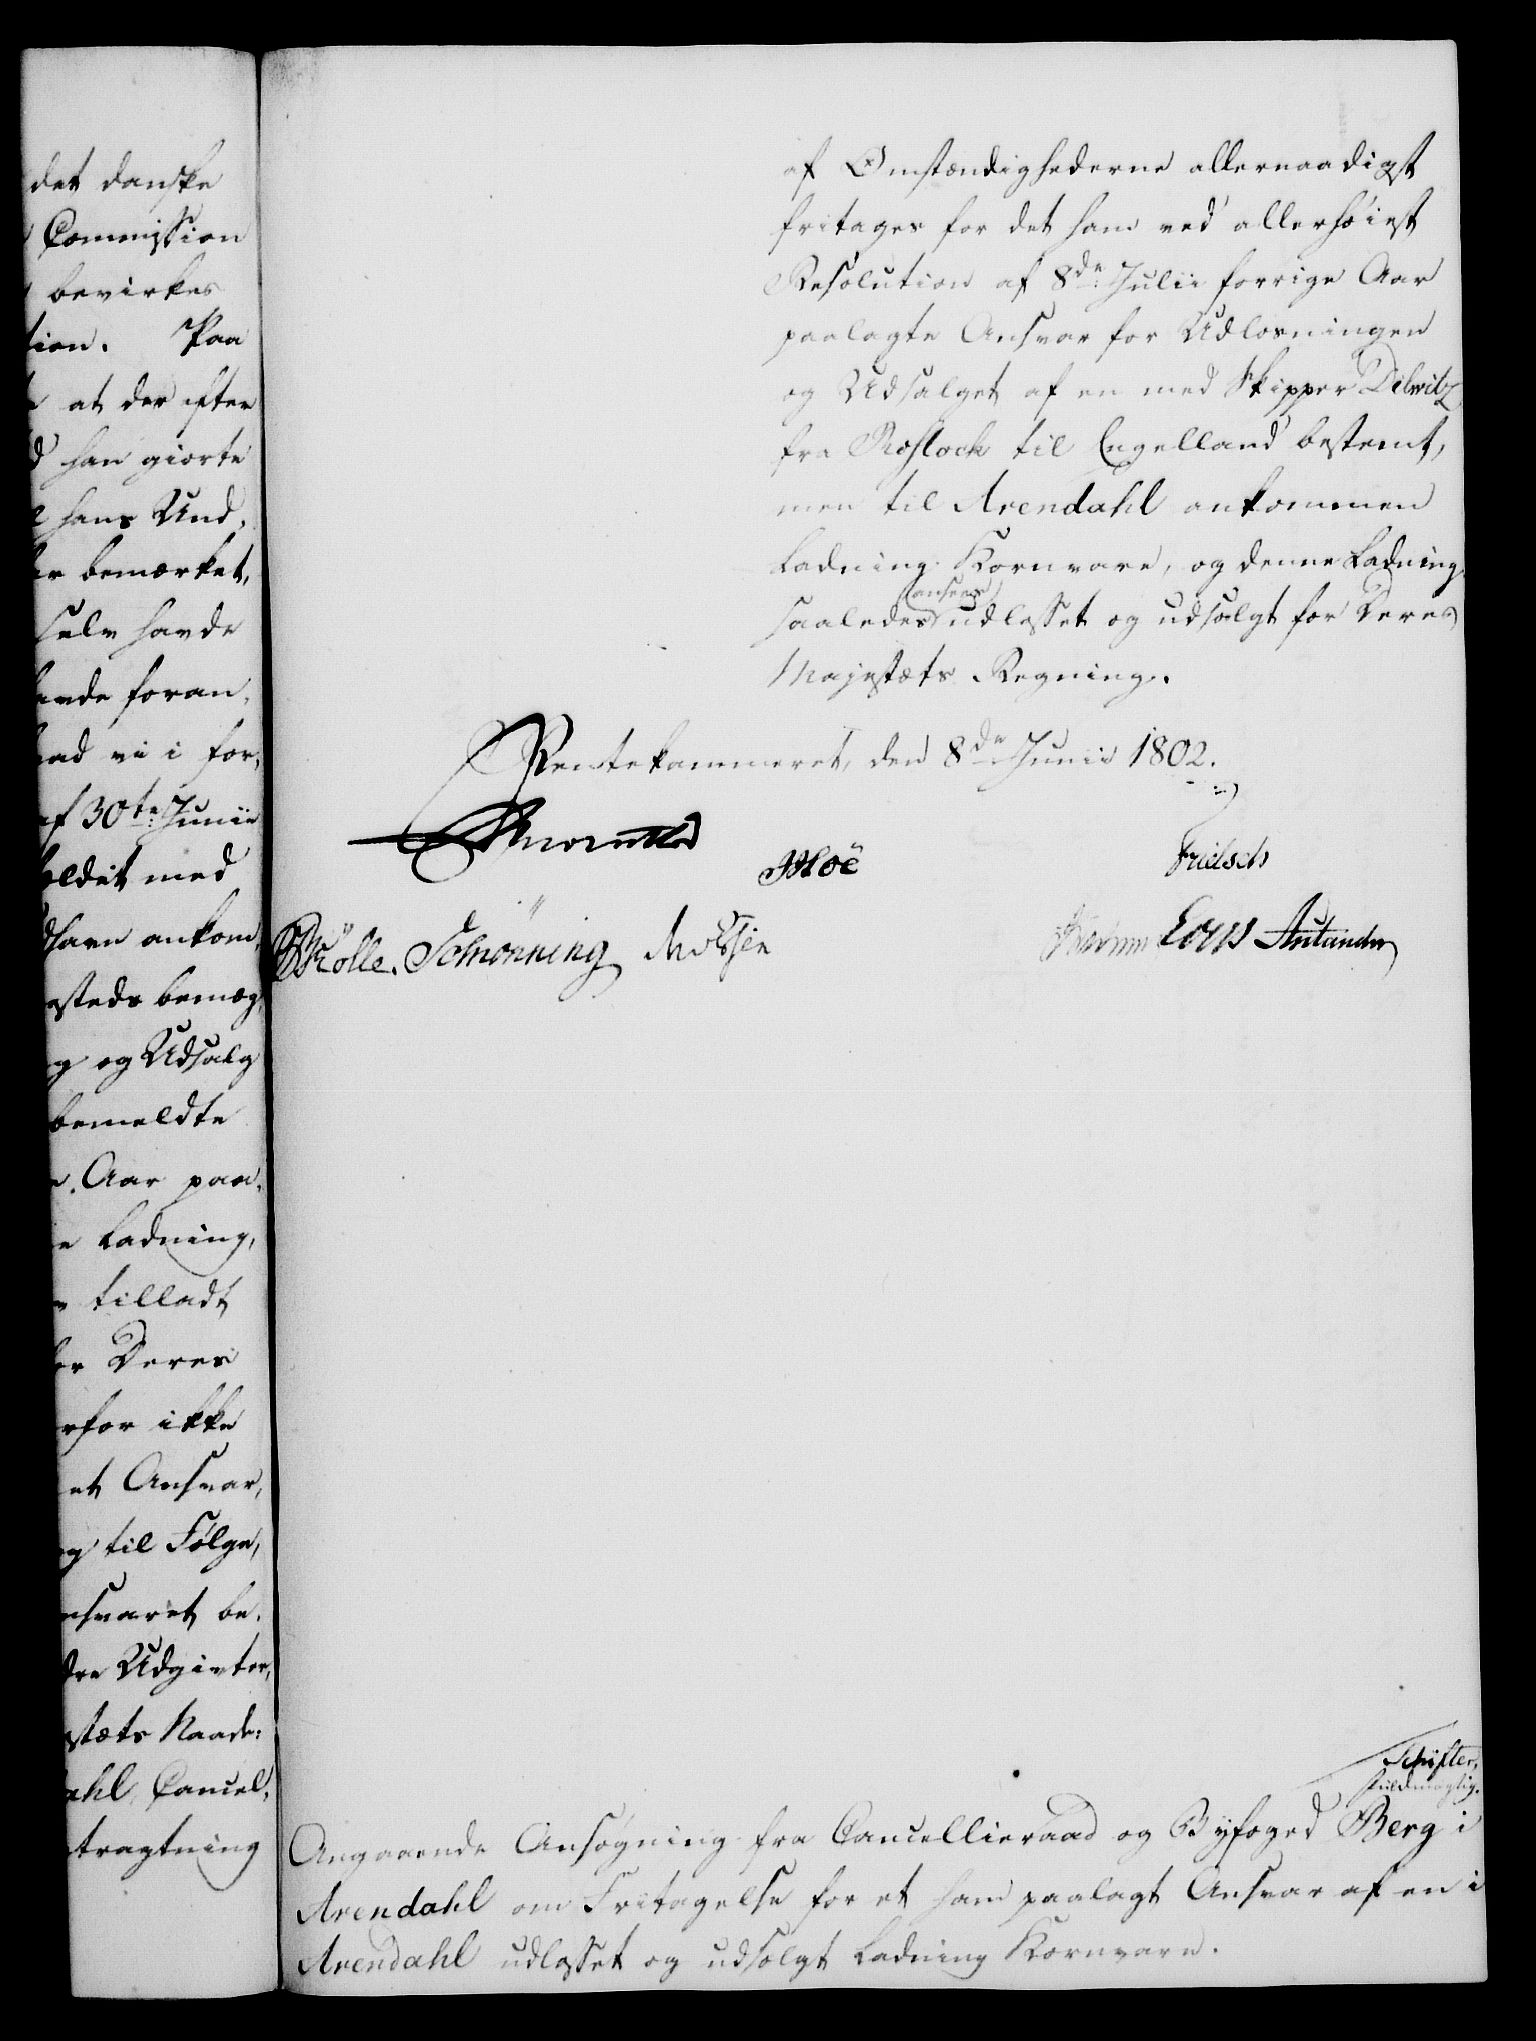 det danske
Commission
bevirkes
tion. Paa
at der efter
han giorte
hans Und,
er bemærket,
selv havde
ande foran,
ad vi i for,
af 30te Junii
oldet med
havn ankom,
steds bemæg,
g og Udsalg
bemeldte
Aar paa,
e Ladning,
tilladt
er Deres
rfor ikke
et Ansvar,
og til Følge,
nsvaret be,
dre Udgivter,
stæts Naade:
ahl, Cancel,
tragtning
af Omstændighederne allernaadigst
fritages for det ham ved allerhøiest
Resolution af 8de Julii forrige Aar
paalagte Ansvar for Udlosningen
og Udsalget af en med Skipper Dilwitz
fra Rostock til Engelland bestemt,
men til Arendahl ankommen
Ladning Kornvare, og denne Ladning
saaledes ansees udlosset og udsolgt for Deres
Majestæts Regning.
Rentekammeret, den 8de Junii 1802.
Hoë
Schønning
Angaaende Ansøgning fra Cancellieraad og Byfoged Berg i
Arendahl om Fritagelse for et ham paalagt Ansvar af en i
Arendahl udlosset og udsolgt Ladning Kornvare.